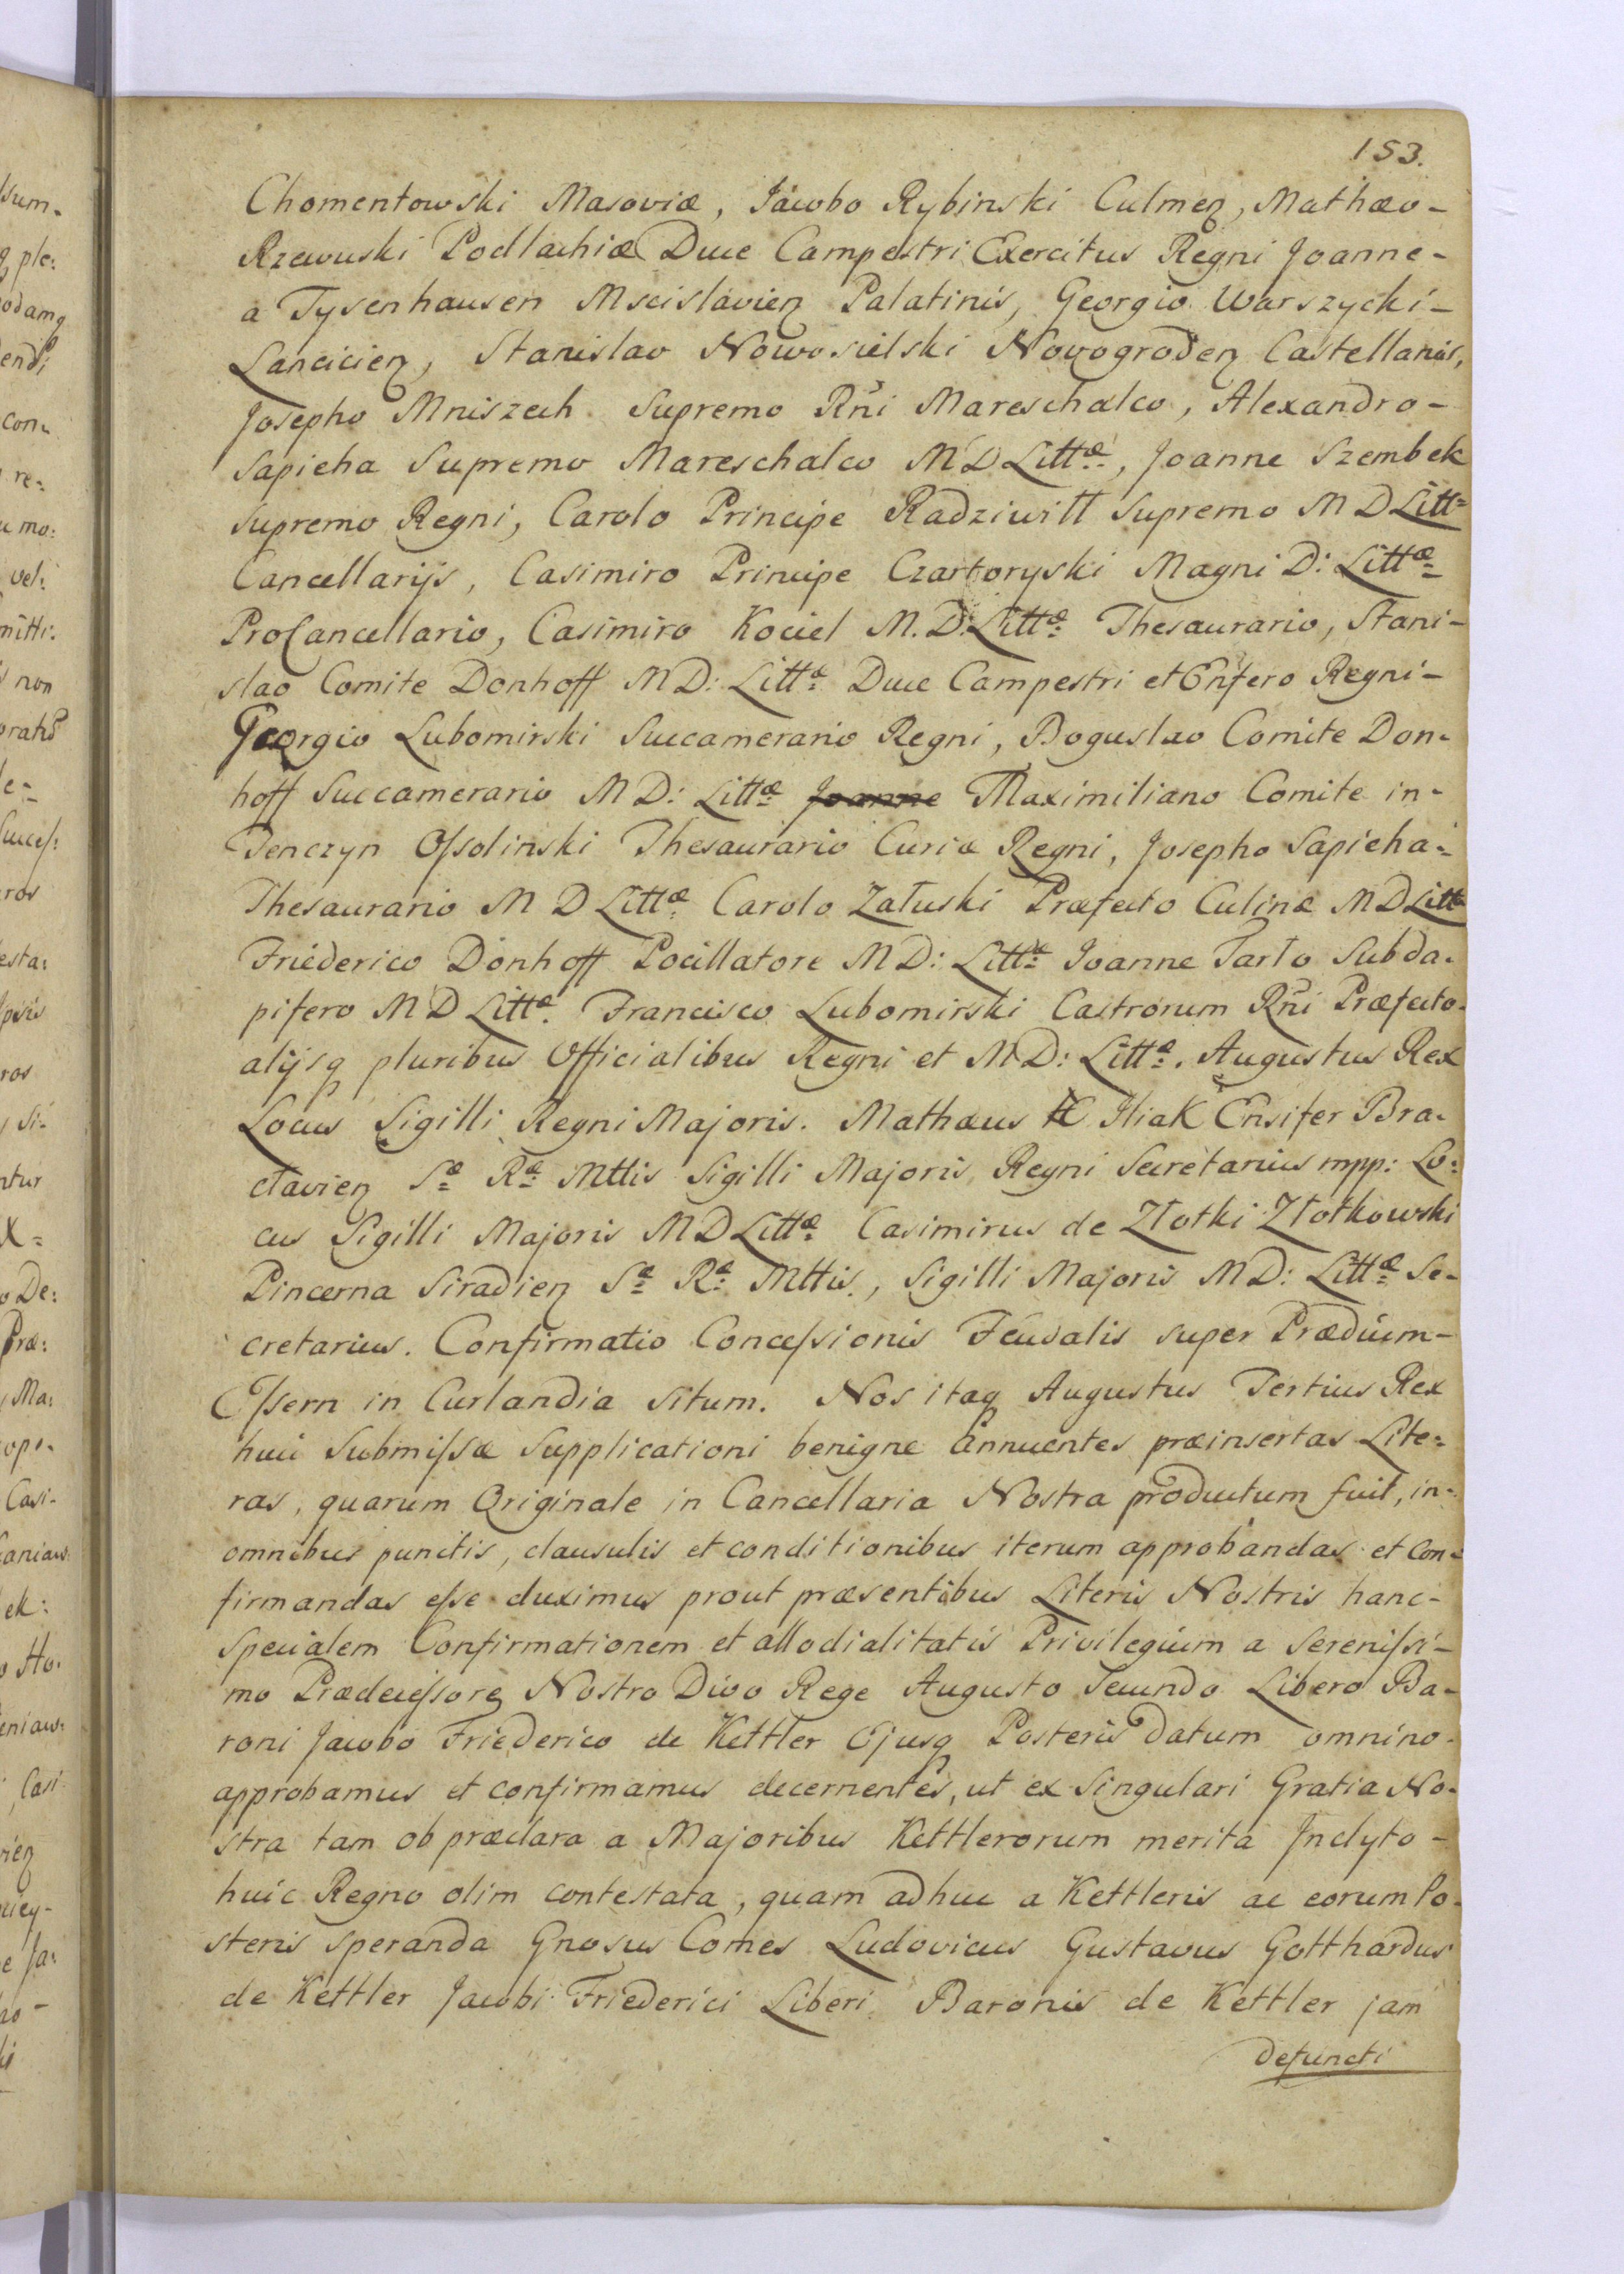 153.
Chomentowski Masoviæ, Jacobo Rybinski Culmeꝫ, Mathæo-
Rzewuski Podlachiæ Duce Campestri Exercitus Regni Joanne-
a Tysenhausen Mscislavieꝫ Palatinis, Georgio Warszycki-
Lancicieꝫ, Stanislao Nowosielski Novogrodeꝫ Castellanis,
Josepho Mniszech Supremo Rñi Mareschalco, Alexandro-
Sapieha Supremo Mareschalco M D Littæ, Joanne Szembek
Supremo Regni, Carolo Principe Radziwiłł Supremo M D Litt=
Cancellarijs, Casimiro Principe Czartoryski Magni D: Littæ
ProCancellario, Casimiro Kociel M. D: Littæ Thesaurario, Stani-
slao Comite Donhoff M D: Littæ Duce Campestri et Ensifero Regni-
Georgio Lubomirski Succamerario Regni, Boguslao Comite Don-
hoff Succamerario M D: Littæ Joanne Maximiliano Comite in-
Tenczyn Ossolinski Thesaurario Curiæ Regni, Josepho Sapieha-
Thesaurario M D Littæ Carolo Załuski Præfecto Culinæ M D Litt
Friederico Dönhoff Pocillatore M D: Littæ Joanne Tarło Subda-
pifero M D Littæ. Francisco Lubomirski Castrorum Rñi Præfecto-
alijsq pluribus Officialibus Regni et M D: Littæ. Augustus Rex
Locus Sigilli Regni Majoris. Mathæus Iliak Ensifer Bra-
clavieꝫ Sæ Ræ Mttis Sigilli Majoris Regni Secretarius mpp: Lo:
cus Sigilli Majoris M D Littæ Casimirus de Złotki Złotkowski
Pincerna Siradieꝫ Sæ Ræ Mttis, Sigilli Majoris M D: Littæ Se-
cretarius. Confirmatio Concessionis Feudalis super Prædium-
Essern in Curlandia situm. Nos itaq Augustus Tertius Rex
huic Submissæ Supplicationi benigne annuentes præinsertas Lite-
ras, quarum Originale in Cancellaria Nostra productum fuit, in-
omnibus punctis, clausulis et conditionibus iterum approbandas et con-
firmandas esse duximus prout præsentibus Literis Nostris hanc-
specialem Confirmationem et allodialitatis Privilegium a Serenissi-
mo Prædecessore Nostro Divo Rege Augusto Secundo Libero Ba-
roni Jacobo Friederico de Kettler Ejusq Posteris datum omnino-
approbamus et confirmamus decernentes, ut ex Singulari Gratia No-
stra tam ob præclara a Majoribus Kettlerorum merita Inclyto-
huic Regno olim contestata, quam adhuc a Kettleris ac eorum Po-
steris speranda Gnosus Comes Ludovicus Gustavus Gotthardus
de Kettler Jacobi Friederici Liberi Baronis de Kettler jam
defuncti